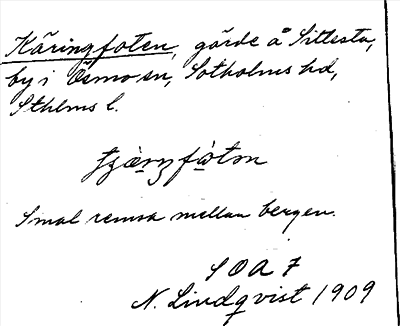 Käringfoten, gärde å Sittesta,
by i Ösmo sn, Sotholms hd,
Sthlms l.
Smal remsa mellan bergen.
SOA 7
N. Lindqvist 1909